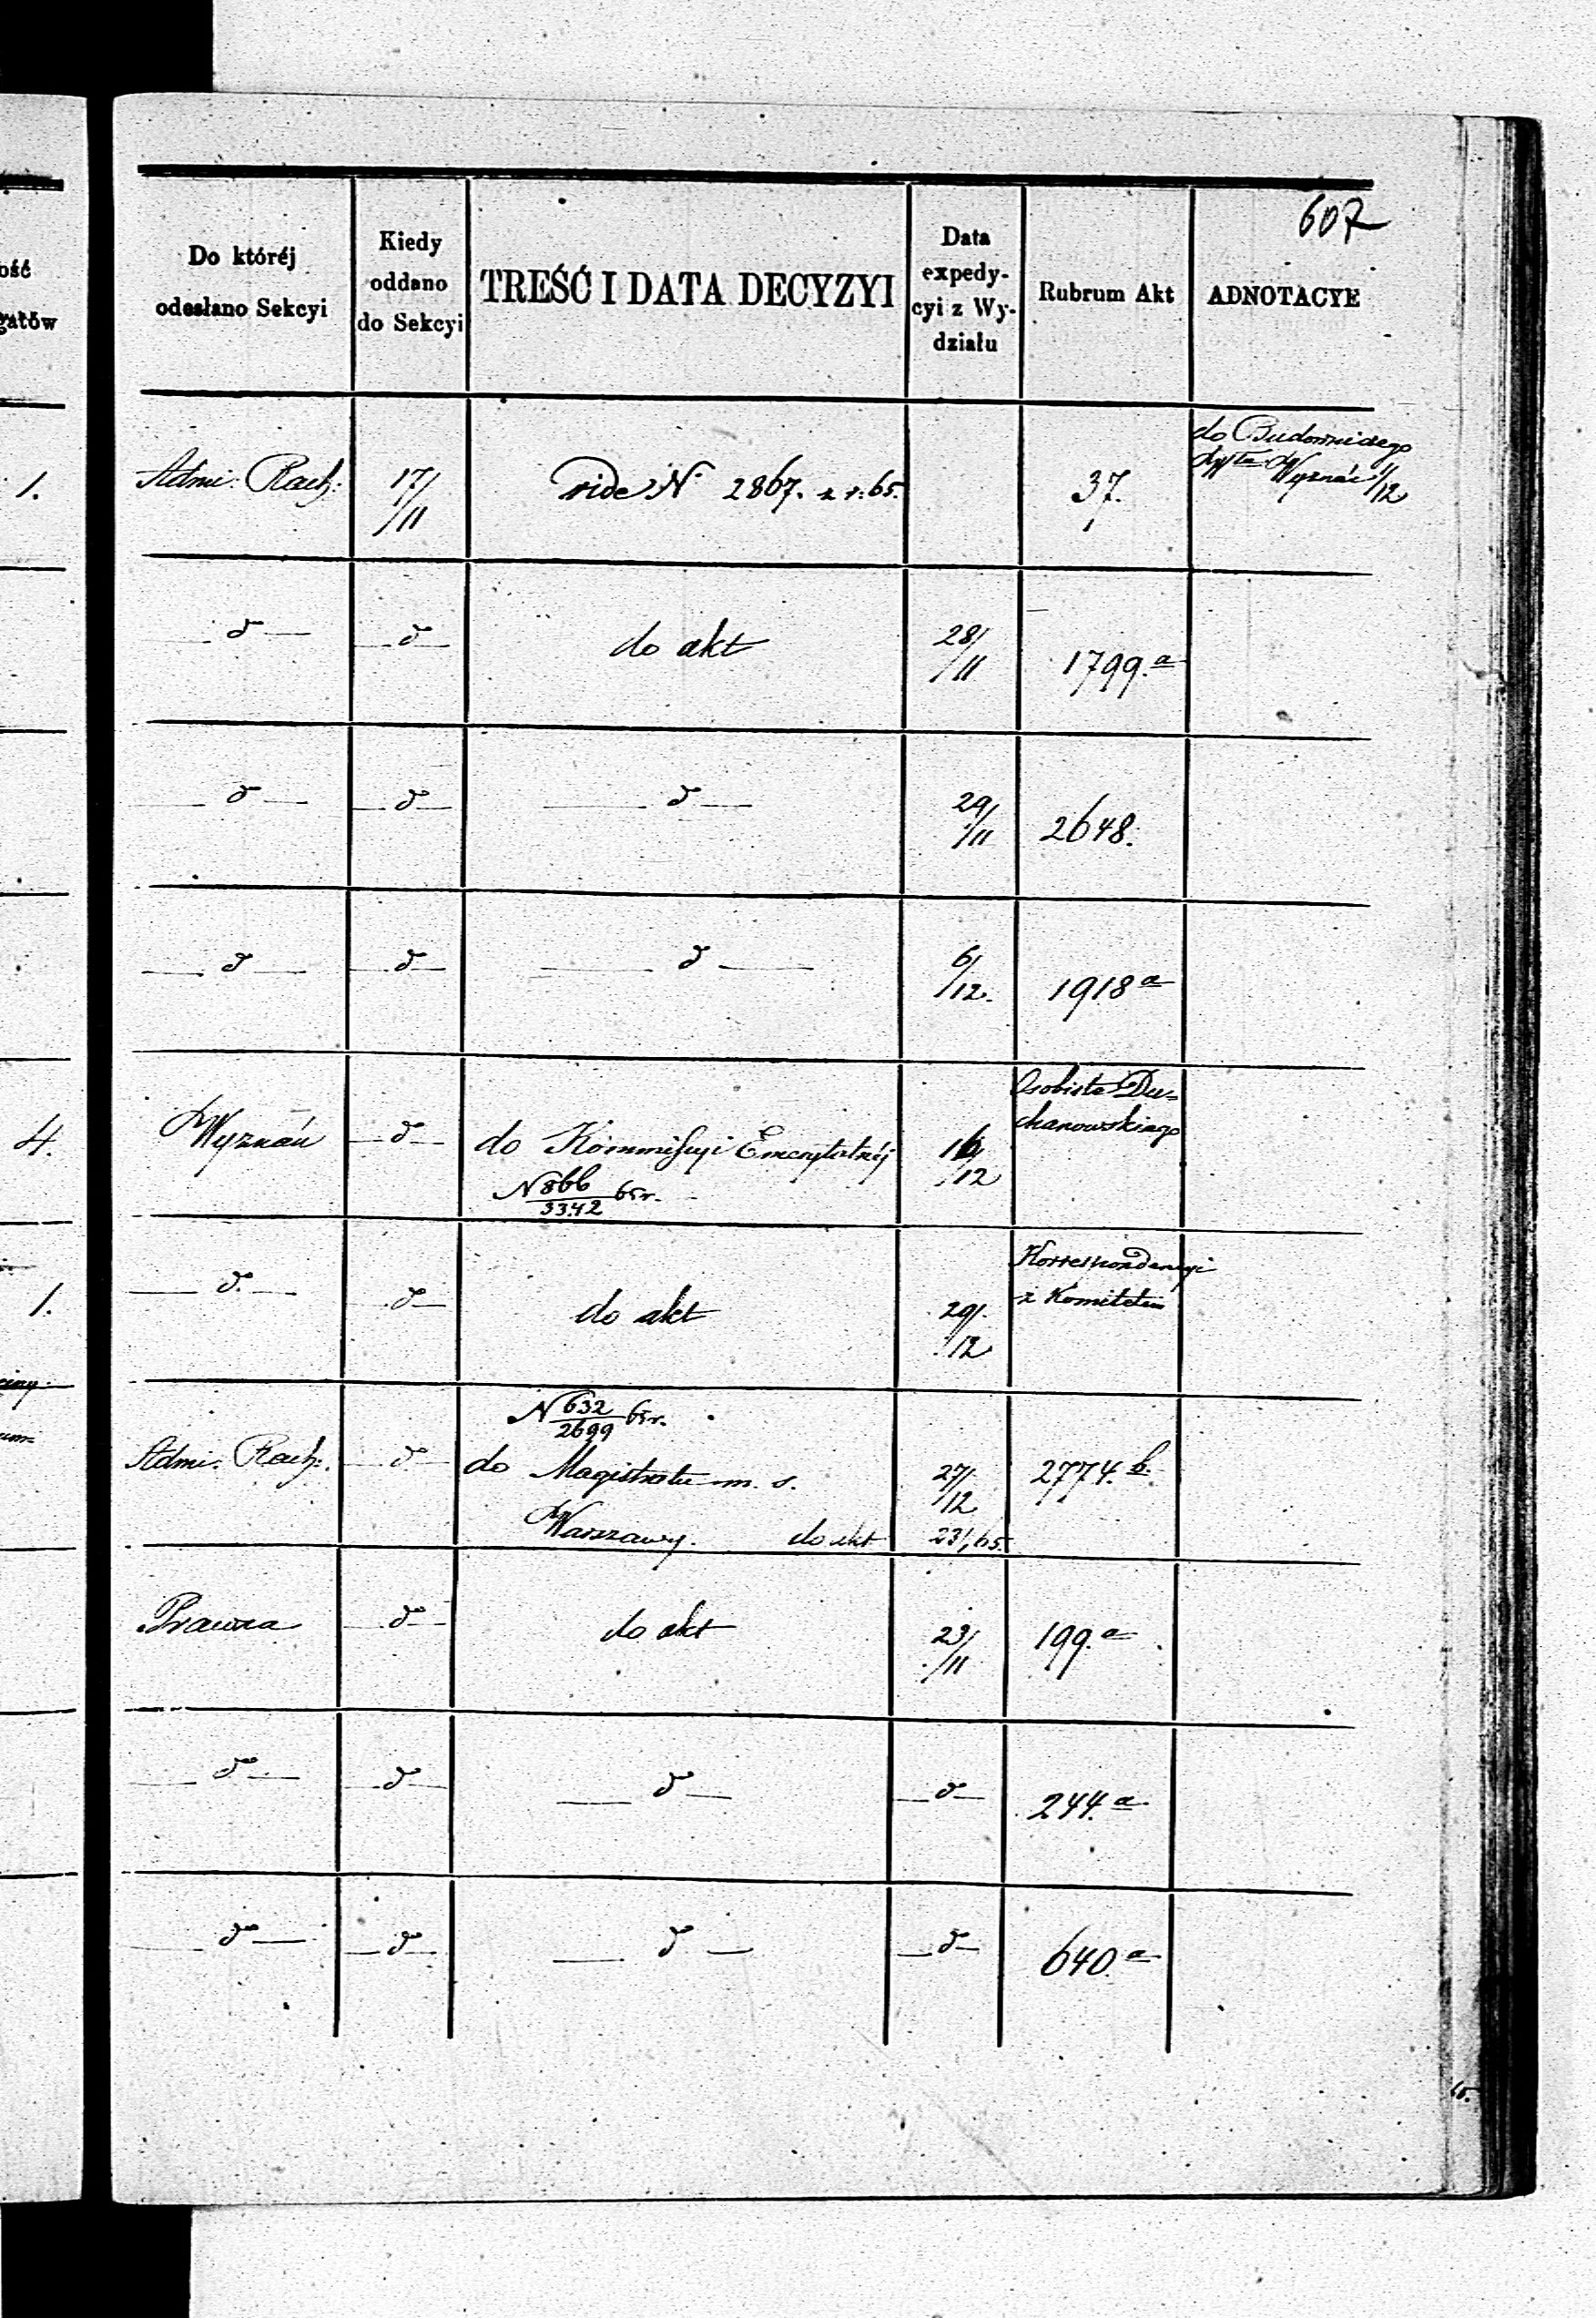 607
ość
gatów
Do któréj
odesłano Sekcyi
Kiedy
oddano
do Sekcyi
TREŚĆ I DATA DECYZYI
Data
expedy-
cyi z Wy-
działu
Rubrum Akt
ADNOTACYE
1.
Admi: Rach:
17/11
vide N 2867. z r: 65.
37.
do Budowniczego
Wyznań /12
d
d
do akt
28/11
1799.a
d
d
d
29/11
2648.
d
d
d
6/12.
1918 a
4.
Wyznań
d
do Kommissyi Emerytalnéj
N 866/3342 65r.
16/12
Osobiste Du=
chanowskiego
1.
d.
d
do akt
29/12
Korrespondencyi
z Komitetem
Admi: Rach:
d
N 632/2699 65r.
do Magistratu m. s.
Warszawy. do akt
27/12
23/1 65.
2774. b.
Prawna
d
do akt
23/11
199.a
d
d
d
d
244.a
d
d
d
d
640.a